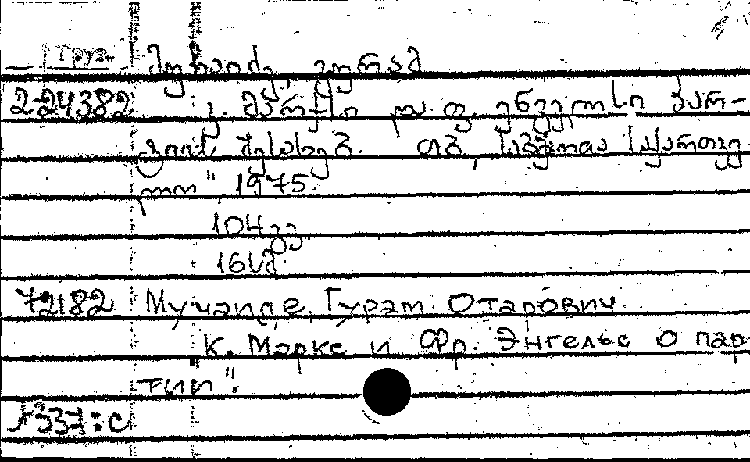 Груз.
მუჩაიძე, გურამ
2-24382 კ. მარქსი და ფ. ენგელსი პარ-
ტიის შესახებ. თბ., საბჭოთა საქართვე
ლო", 1975.
104 გვ.
16სმ.
72182 Мучаидзе, Гурам Отарович.
"К. Маркс и Фр. Энгельс о пар
тии".